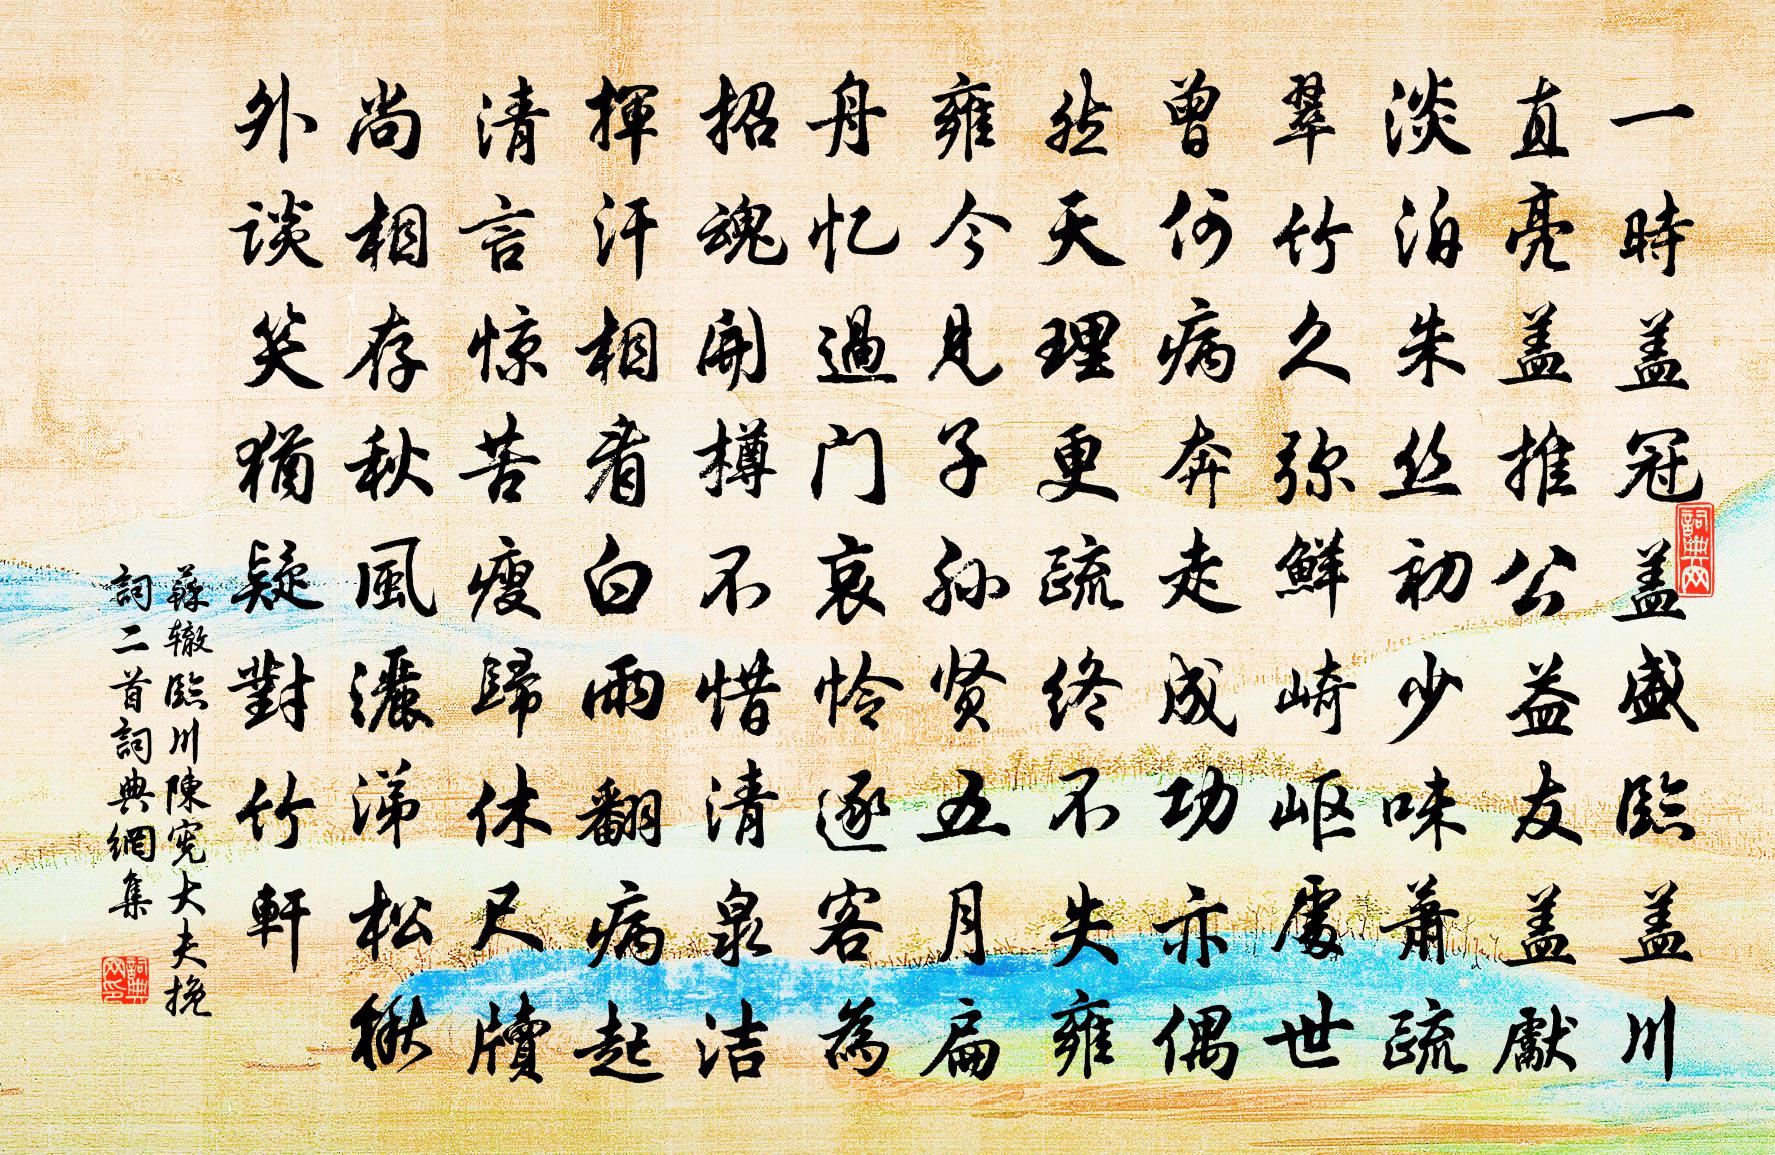 一時盖冠盖盛臨盖川
直亮盖推公益友盖獻
淡泊朱丝初少味萧疏
翠竹久弥鮮崎岖處世
曾何病奔走成功亦偶
然天理更疏终不失雍
雍今見子孙贤五月扁
舟忆過门哀怜逐客為
招魂開樽不惜清泉洁
揮汗相看白雨翻病起
清言惊苦瘦歸休尺牘
尚相存秋風灑涕松楸
外谈笑猶疑對竹軒
蘇辙臨川陳宪大夫挽
詞二首詞典網集
詞典网
詞典网印